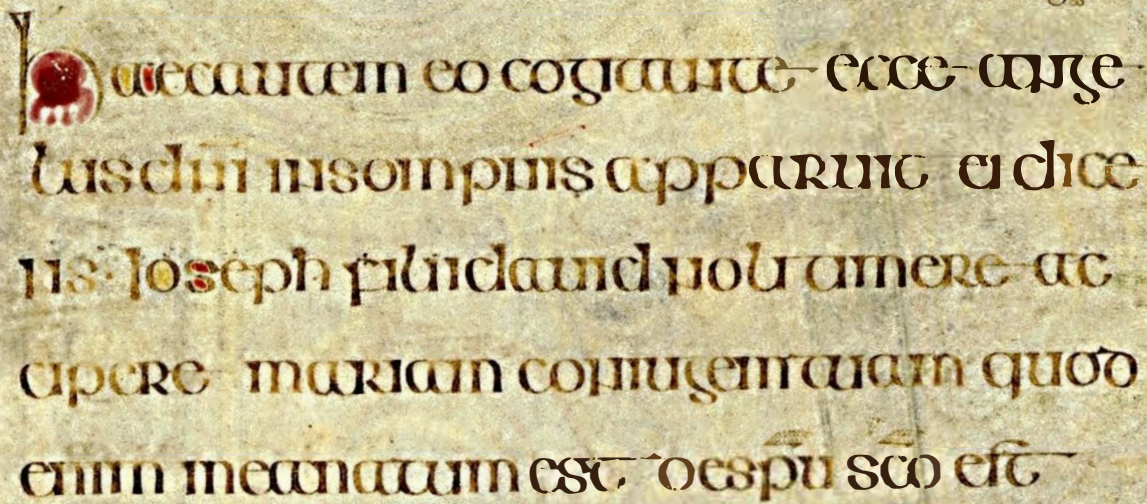 Haecautem eo cogitante ecce ange
lus dni insompnis apparuit ei dice
ns Ioseph filidauid noli timere ac
cipere mariam coniugemtuam quod
enim ineanatum est despu sco est